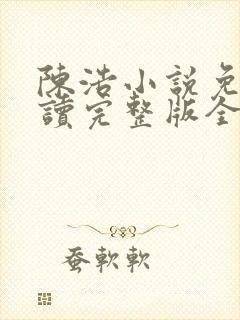 陳浩小説免
讀完整版全
蚕軟軟